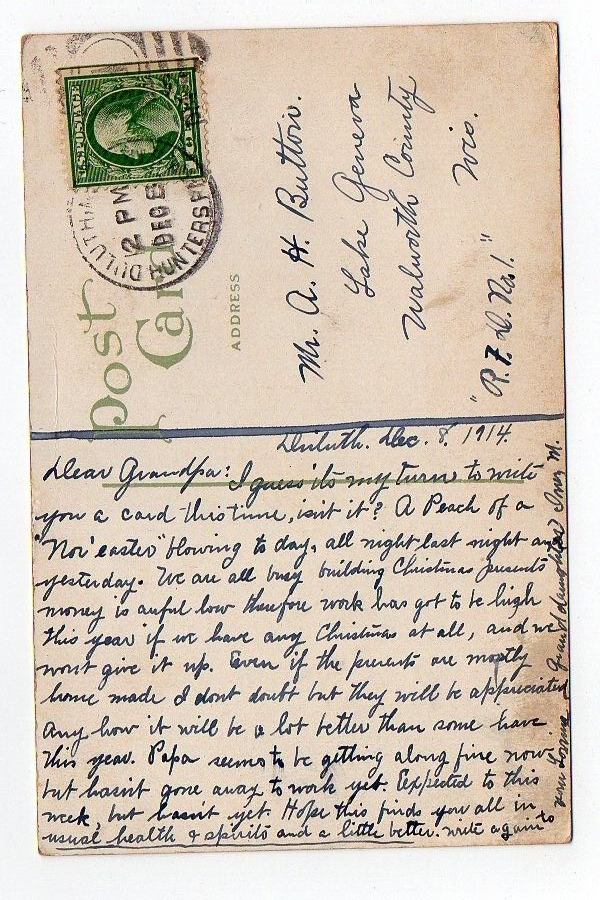 U.S. POSTAGE
DULUTH, M
2 PM
DEC 8
HUNTERS P
Post
Card
ADDRESS
Mr. A. H. Button.
Lake Geneva
Walworth County
Wis.
"R. F. D. No. 1."
Duluth. Dec. 8. 1914.
Dear Grandpa: I guess its my turn to write
you a card this time, isn't it? A Peach of a
"Nor'easter" blowing to day, all night last night an
yesterday. We are all busy building Christmas presents
money is auful low therefore work has got to be high
this year if we have any Christmas at all, and we
wont give it up. Even if the presents are mostly
home made I dont doubt but they will be appreciated
any how it will be a lot better than some have
this year. Papa seems to be getting along fine now
but hasn't gone away to work yet. Expected to this
week, but hasn't yet. Hope this finds you all in
usual health & spirits and a little better. write again to
your Loving Granddaughter Inez M.